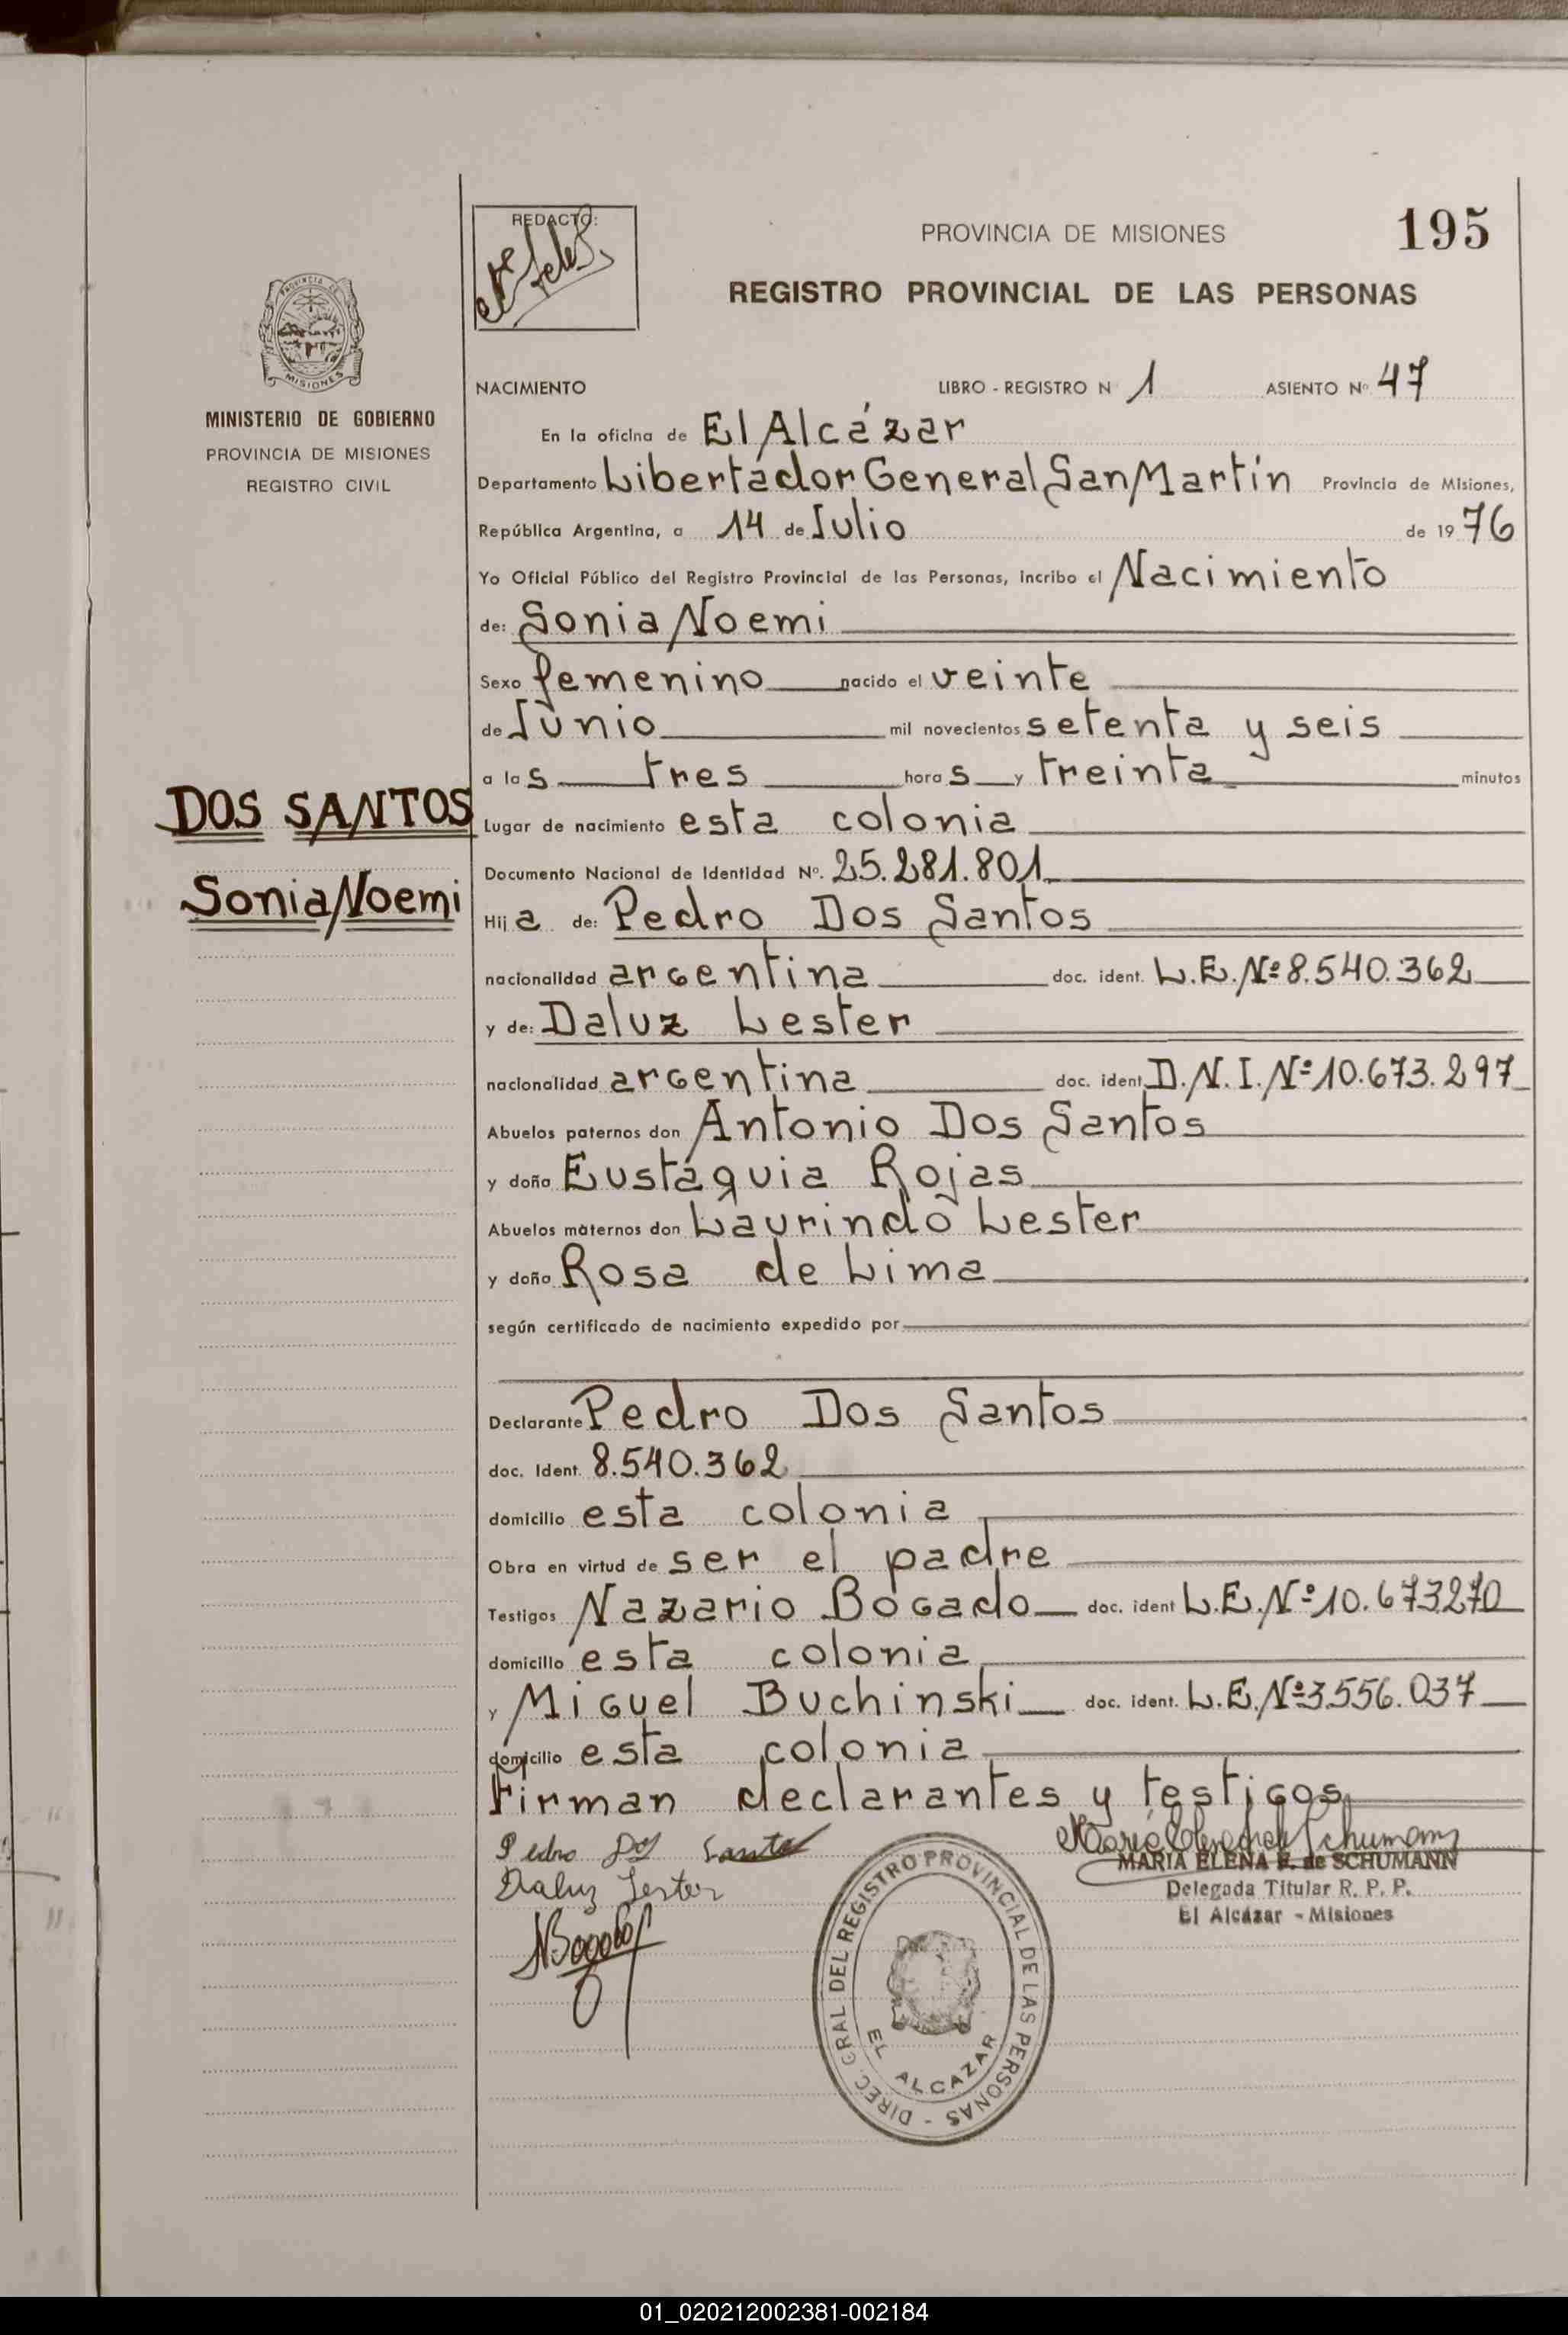 195
REDACTO:
PROVINCIA DE MISIONES
REGISTRO PROVINCIAL DE LAS PERSONAS
PROVINCIA DE
MISIONES
MINISTERIO DE GOBIERNO
PROVINCIA DE MISIONES
REGISTRO CIVIL
DOS SANTOS
Sonia Noemi
NACIMIENTO LIBRO - REGISTRO N 1 ASIENTO Nº 47
En la oficina de El Alcázar
Departamento Libertador General San Martín Provincia de Misiones,
República Argentina, a 14 de Julio de 1976
Yo Oficial Público del Registro Provincial de las Personas, incribo el Nacimiento
de: Sonia Noemi
Sexo femenino nacido el veinte
de Junio mil novecientos setenta y seis
a las tres horas y treinta minutos
Lugar de nacimiento esta colonia
Documento Nacional de Identidad Nº. 25.281.801
Hija de: Pedro Dos Santos
nacionalidad argentina doc. ident. L.E. Nº 8.540.362
y de: Daluz Lester
nacionalidad argentina doc. ident D.N.I. Nº 10.673.297
Abuelos paternos don Antonio Dos Santos
y doña Eustáquia Rojas
Abuelos maternos don Laurindo Lester
y doña Rosa de Lima
según certificado de nacimiento expedido por
Declarante Pedro Dos Santos
doc. Ident. 8.540.362
domicilio esta colonia
Obra en virtud de ser el padre
Testigos Nazario Bogado doc. ident L.E. Nº 10.673270
domicilio esta colonia
y Miguel Buchinski doc. ident. L.E. Nº 3.556.037
domicilio esta colonia
Firman declarantes y testigos
Pedro Dos Santos
Daluz Lester
NBogado
MARIA ELENA E. de SCHUMANN
Delegada Titular R. P. P.
El Alcázar - Misiones
DIREC. GRAL DEL REGISTRO PROVINCIAL DE LAS PERSONAS -
EL ALCAZAR
01_020212002381-002184